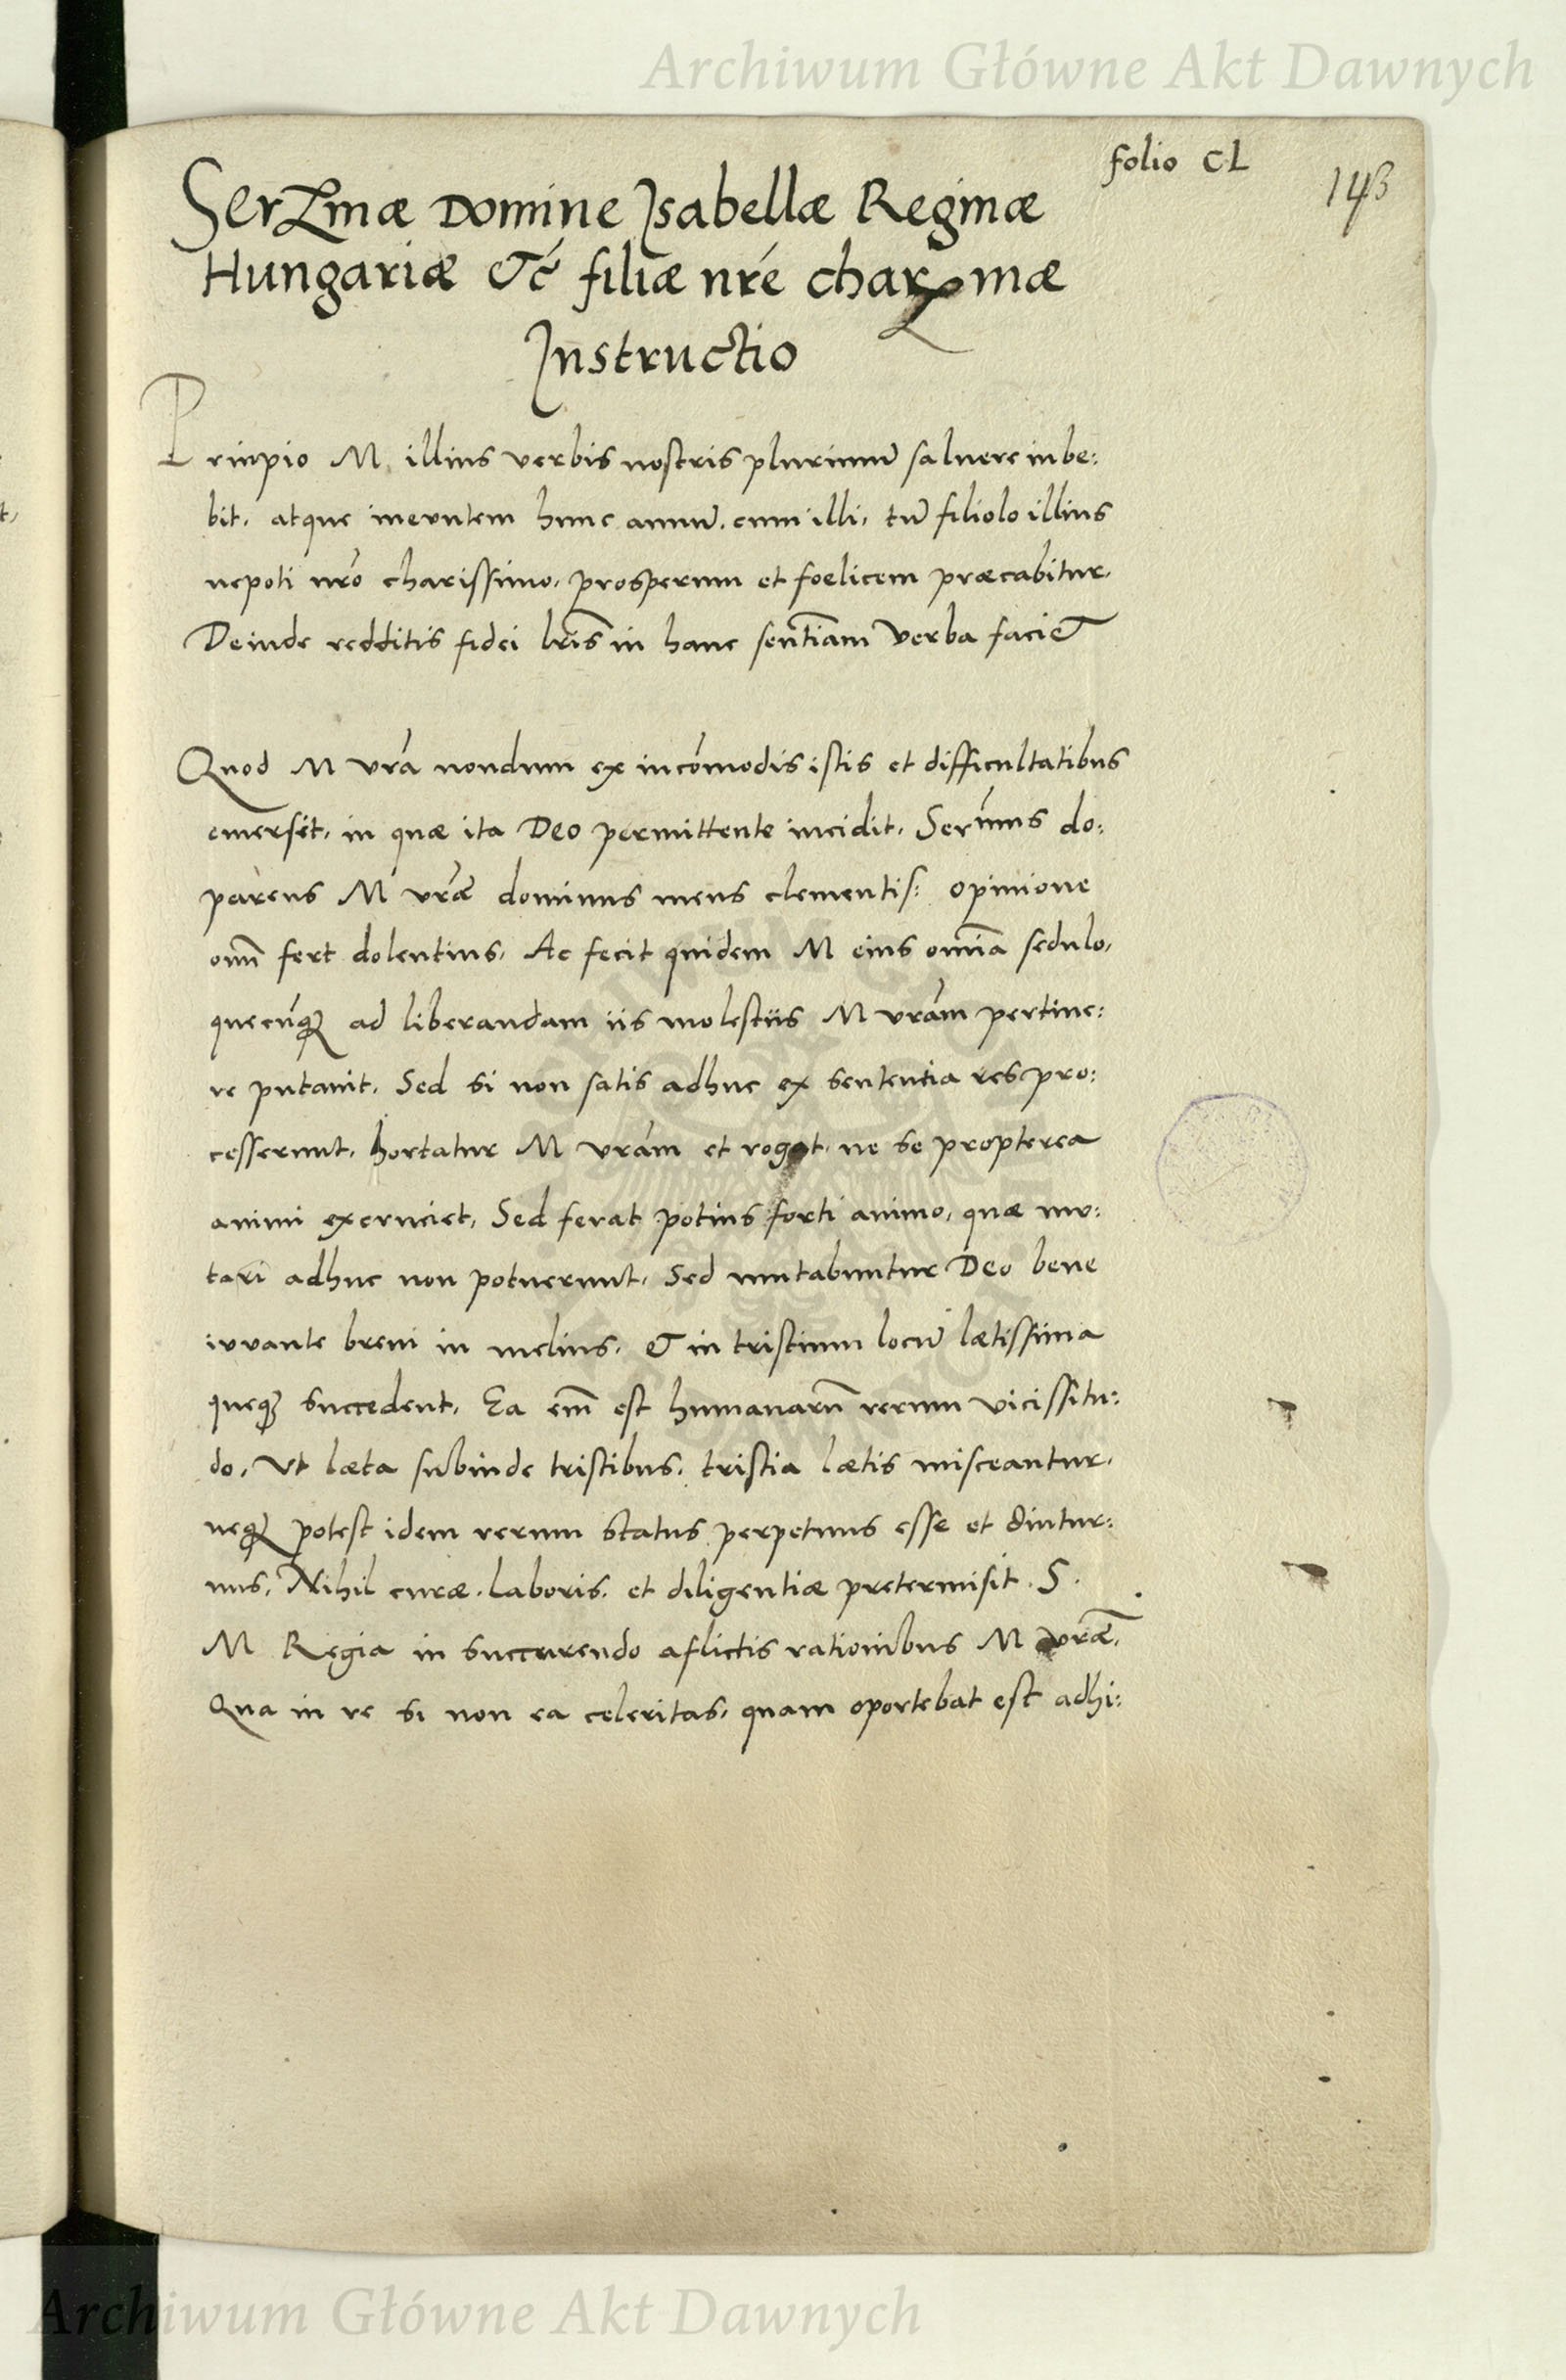 Archiwum Główne Akt Dawnych
folio CL
143
Serzmæ Domine Isabellæ Reginæ
Hungariæ &c filiæ nrē charzmæ
Instructio
Prinpio M. illius verbis nostris plurimū saluere iube:
bit. atque ineuntem hunc annū. cum illi, tū filiolo illius
nepoti nrō charissimo, prosperum et foelicem præcabitur.
Deinde redditis fidei lrīs in hanc sentīam verba faciet
Quod M vrā nondum ex incōmodis istis et difficultatibus
emersit, in quæ ita Deo permittente incidit, Serm̄us do:
parens M vrǣ dominus meus clementis: opinione
om̄ fert dolentius, Ac fecit quidem M eius omīa sedulo,
quecūq3 ad liberandam iis molestiis M vrām pertine:
re putauit. Sed si non satis adhuc ex sententia res pro:
cesserunt, hortatur M vrām et rogat, ne se propterea
animi excruciet, Sed ferat potius forti animo, quæ mu:
tari adhuc non potuerunt, Sed mutabuntur Deo bene
iuuante breui in melius. & in tristium locū lætissima
queq3 succedent. Ea em̄ est humanarū rerum vicissitu:
do, Vt læta subinde tristibus, tristia lætis misceantur,
neq3 potest idem rerum status perpetuus esse et diutur:
nus. Nihil curæ. laboris. et diligentiæ pretermisit. S.
M Regia in succurrendo aflictis rationibus M vrǣ,
Qua in re si non ea celeritas, quam oportebat est adhi:
Archiwum Główne Akt Dawnych